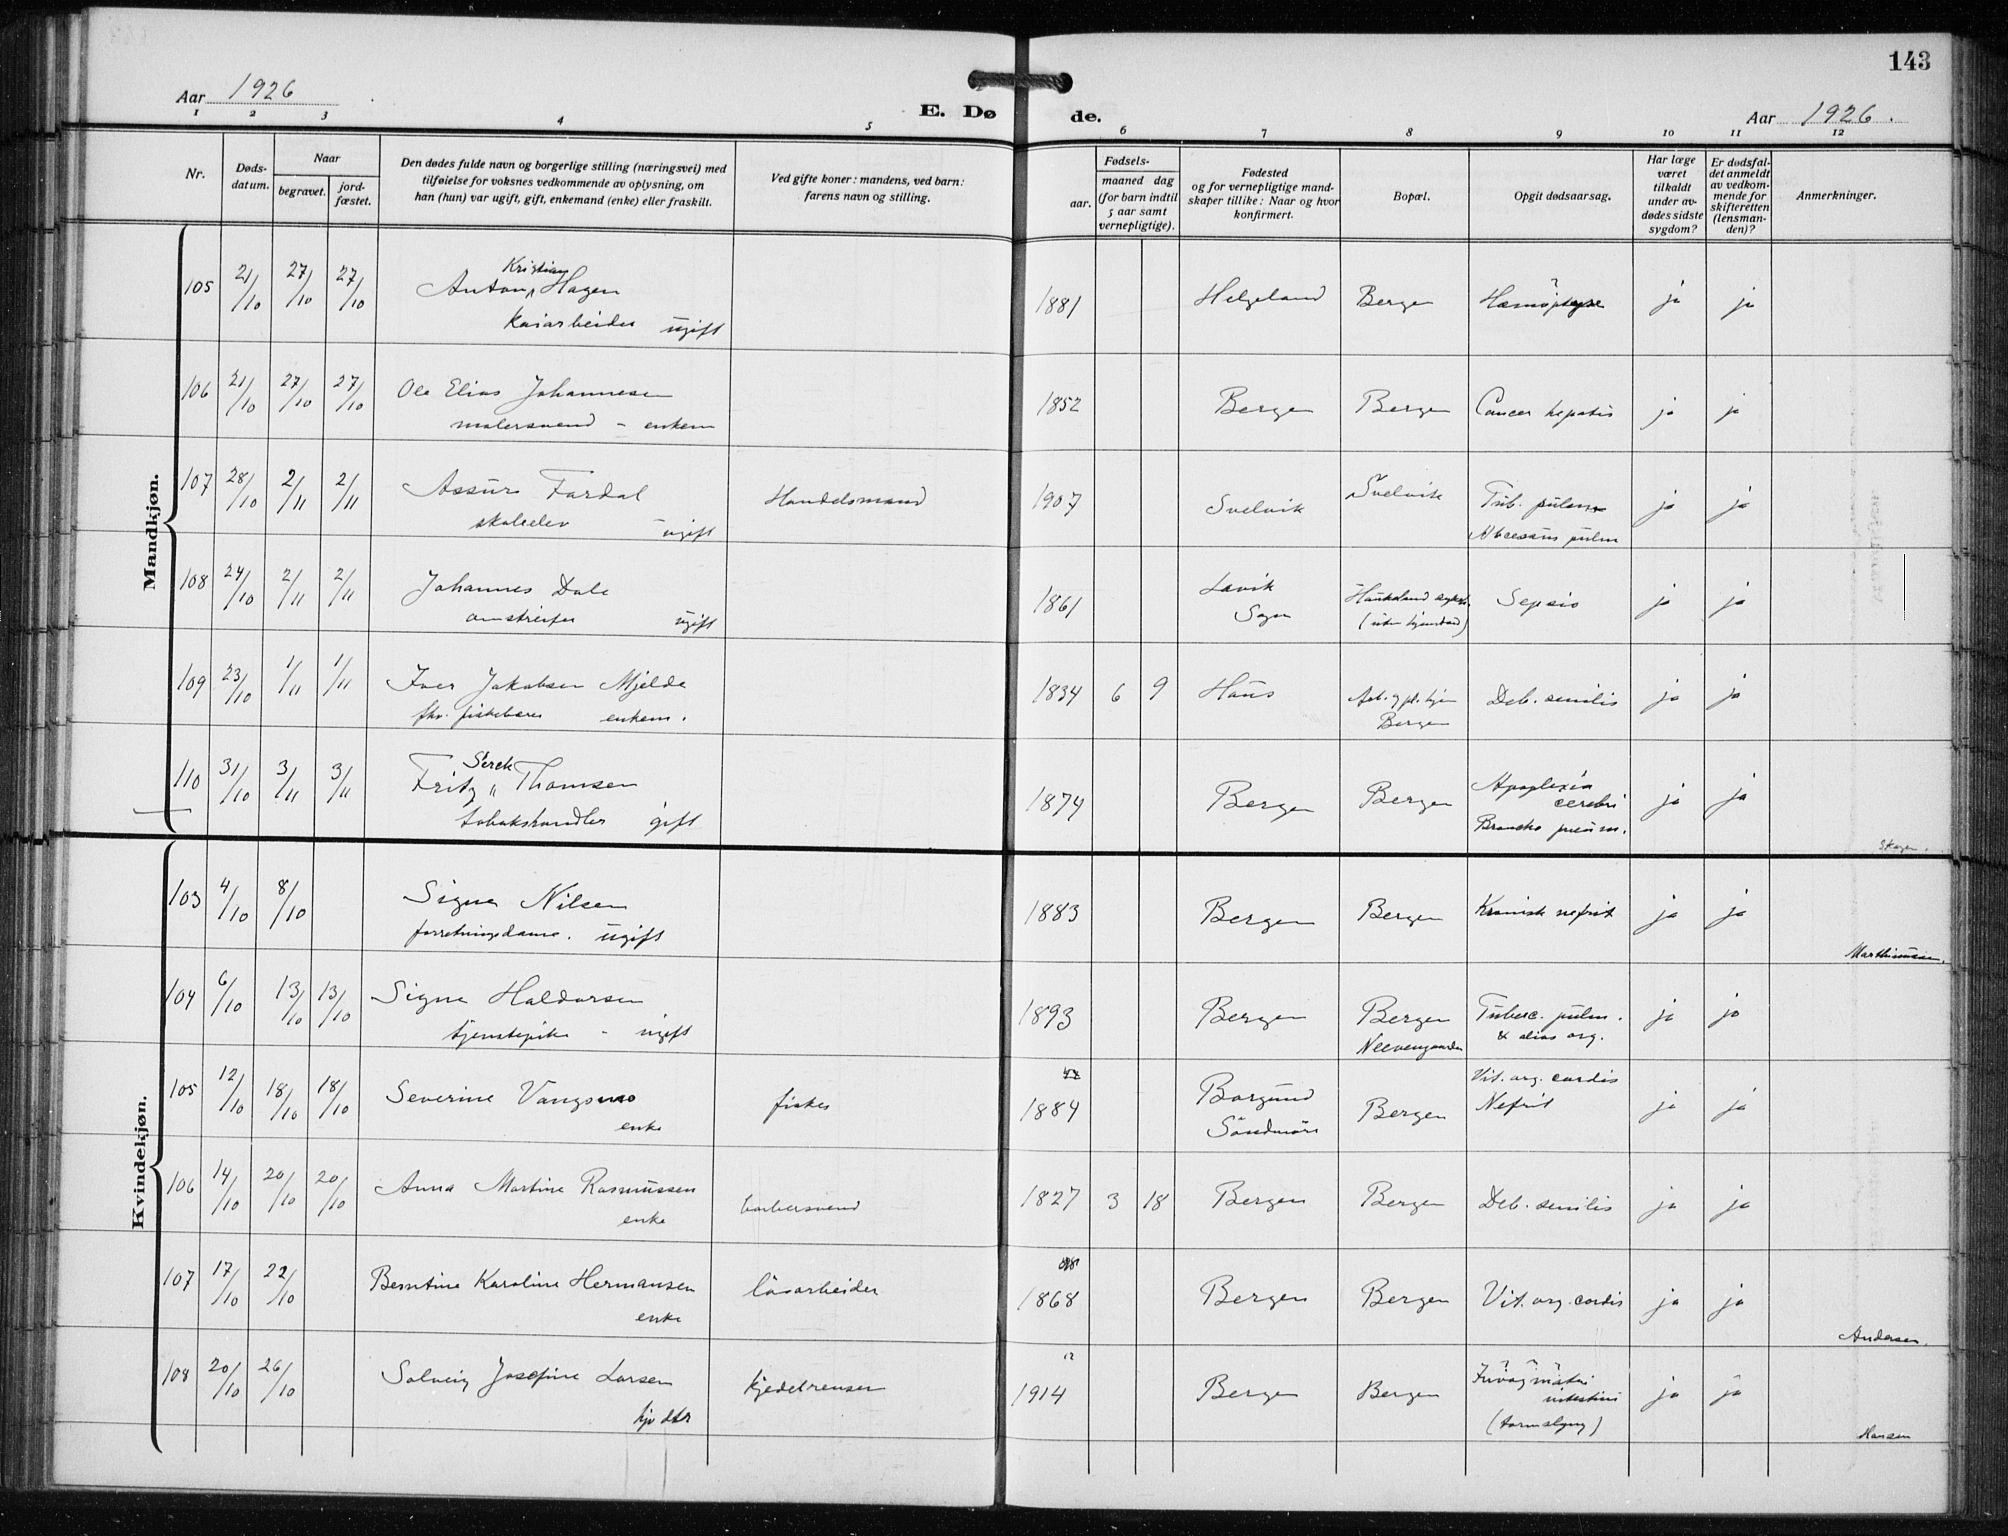 143
Aar 1926
E. Dø de.
Aar 1926.
1 2 3 4 5 6 7 8 9 10 11 12
Nr.
Døds-
datum.
Naar
begravet.
jord-
fæstet.
Den dødes fulde navn og borgerlige stilling (næringsvei) med
tilføielse for voksnes vedkommende av oplysning, om
han (hun) var ugift, gift, enkemand (enke) eller fraskilt.
Ved gifte koner: mandens, ved barn:
farens navn og stilling.
Fødsels-
aar.
maaned dag
(for barn indtil
5 aar samt
vernepligtige).
Fødested
og for vernepligtige mand-
skaper tillike: Naar og hvor
konfirmert.
Bopæl.
Opgit dødsaarsag.
Har læge
været
tilkaldt
under av-
dødes sidste
sygdom?
Er dødsfal-
det anmeldt
av vedkom-
mende for
skifteretten
(lensman-
den)?
Anmerkninger.
Mandkjøn.
105 21/10 27/10 27/10 Anton Kristian Hagen 1881 Helgeland Bergen ja ja
Kaiarbeider ugift
106 21/10 27/10 27/10 Ole Elias Johannesen 1852 Bergen Bergen Cancer hepatis ja ja
malersvend - enkem
107 28/10 2/11 2/11 Assur Fardal Handelsmand 1907 Svelvik Svelvik Tub. pulm ja ja
skoleelev ugift Abcessus pulm
108 24/10 2/11 2/11 Johannes Dale 1861 Lavik Haukeland sykh. Sepsis ja ja
omstreifer ugift Sogn (uten hjemsted)
109 23/10 1/11 1/11 Iver Jakobsen Mjelde 1834 6 9 Haus Arb. og pl. hjem Deb. senilis ja ja
fhv. fiskebærer enkem. Bergen
110 31/10 3/11 3/11 Fritz Serck Thomsen 1874 Bergen Bergen Apoplexia cerebri ja ja
tobakshandler gift Broncho pneum.
Skagen.
Kvindekjøn.
103 4/10 8/10 Signe Nilsen 1883 Bergen Bergen Kronisk nefrit ja ja
forretningsdame. ugift
Marthinussen.
104 6/10 13/10 13/10 Signe Haldorsen 1893 Bergen Bergen Tuberc. pulm. ja ja
tjenstepike - ugift Neevengaarden & alias org.
105 12/10 18/10 18/10 Severine Vangsnes fisker 1884 Borgund Bergen Vit. org. cordis ja ja
enke Söndmöre Nefrit
106 14/10 20/10 20/10 Anna Martine Rasmussen barbersvend 1827 3 18 Bergen Bergen Deb. senilis ja ja
enke
107 17/10 22/10 Berntine Karoline Hermansen løsarbeider 1868 Bergen Bergen Vit. org. cordis ja ja
enke
Andersen.
108 20/10 26/10 Solveig Josefine Larsen kjedelrenser 12 1914 Bergen Bergen ja ja
hjv dtr intestini
(tarmslyng)
Hansen